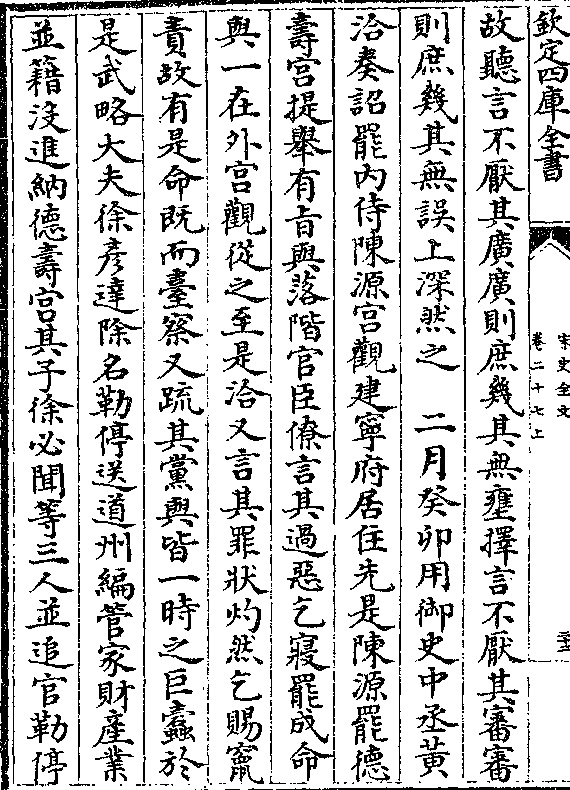 欽定四庫全書
宋史全文
卷二十七上
故聽言不厭其廣廣則庶幾其無壅擇言不厭其審審
則庶幾其無誤上深然之　二月癸卯用御史中丞黃
洽奏詔罷内侍陳源宫觀建寧府居住先是陳源罷德
壽宫提舉有㫖與落階官臣僚言其過惡乞寢罷成命
與一在外宫觀從之至是洽又言其罪狀灼然乞賜竄
責故有是命既而臺察又疏其黨與皆一時之巨蠧於
是武略大夫徐彦達除名勒停送道州編管家財產業
並籍沒進納德壽宫其子徐必聞等三人並追官勒停